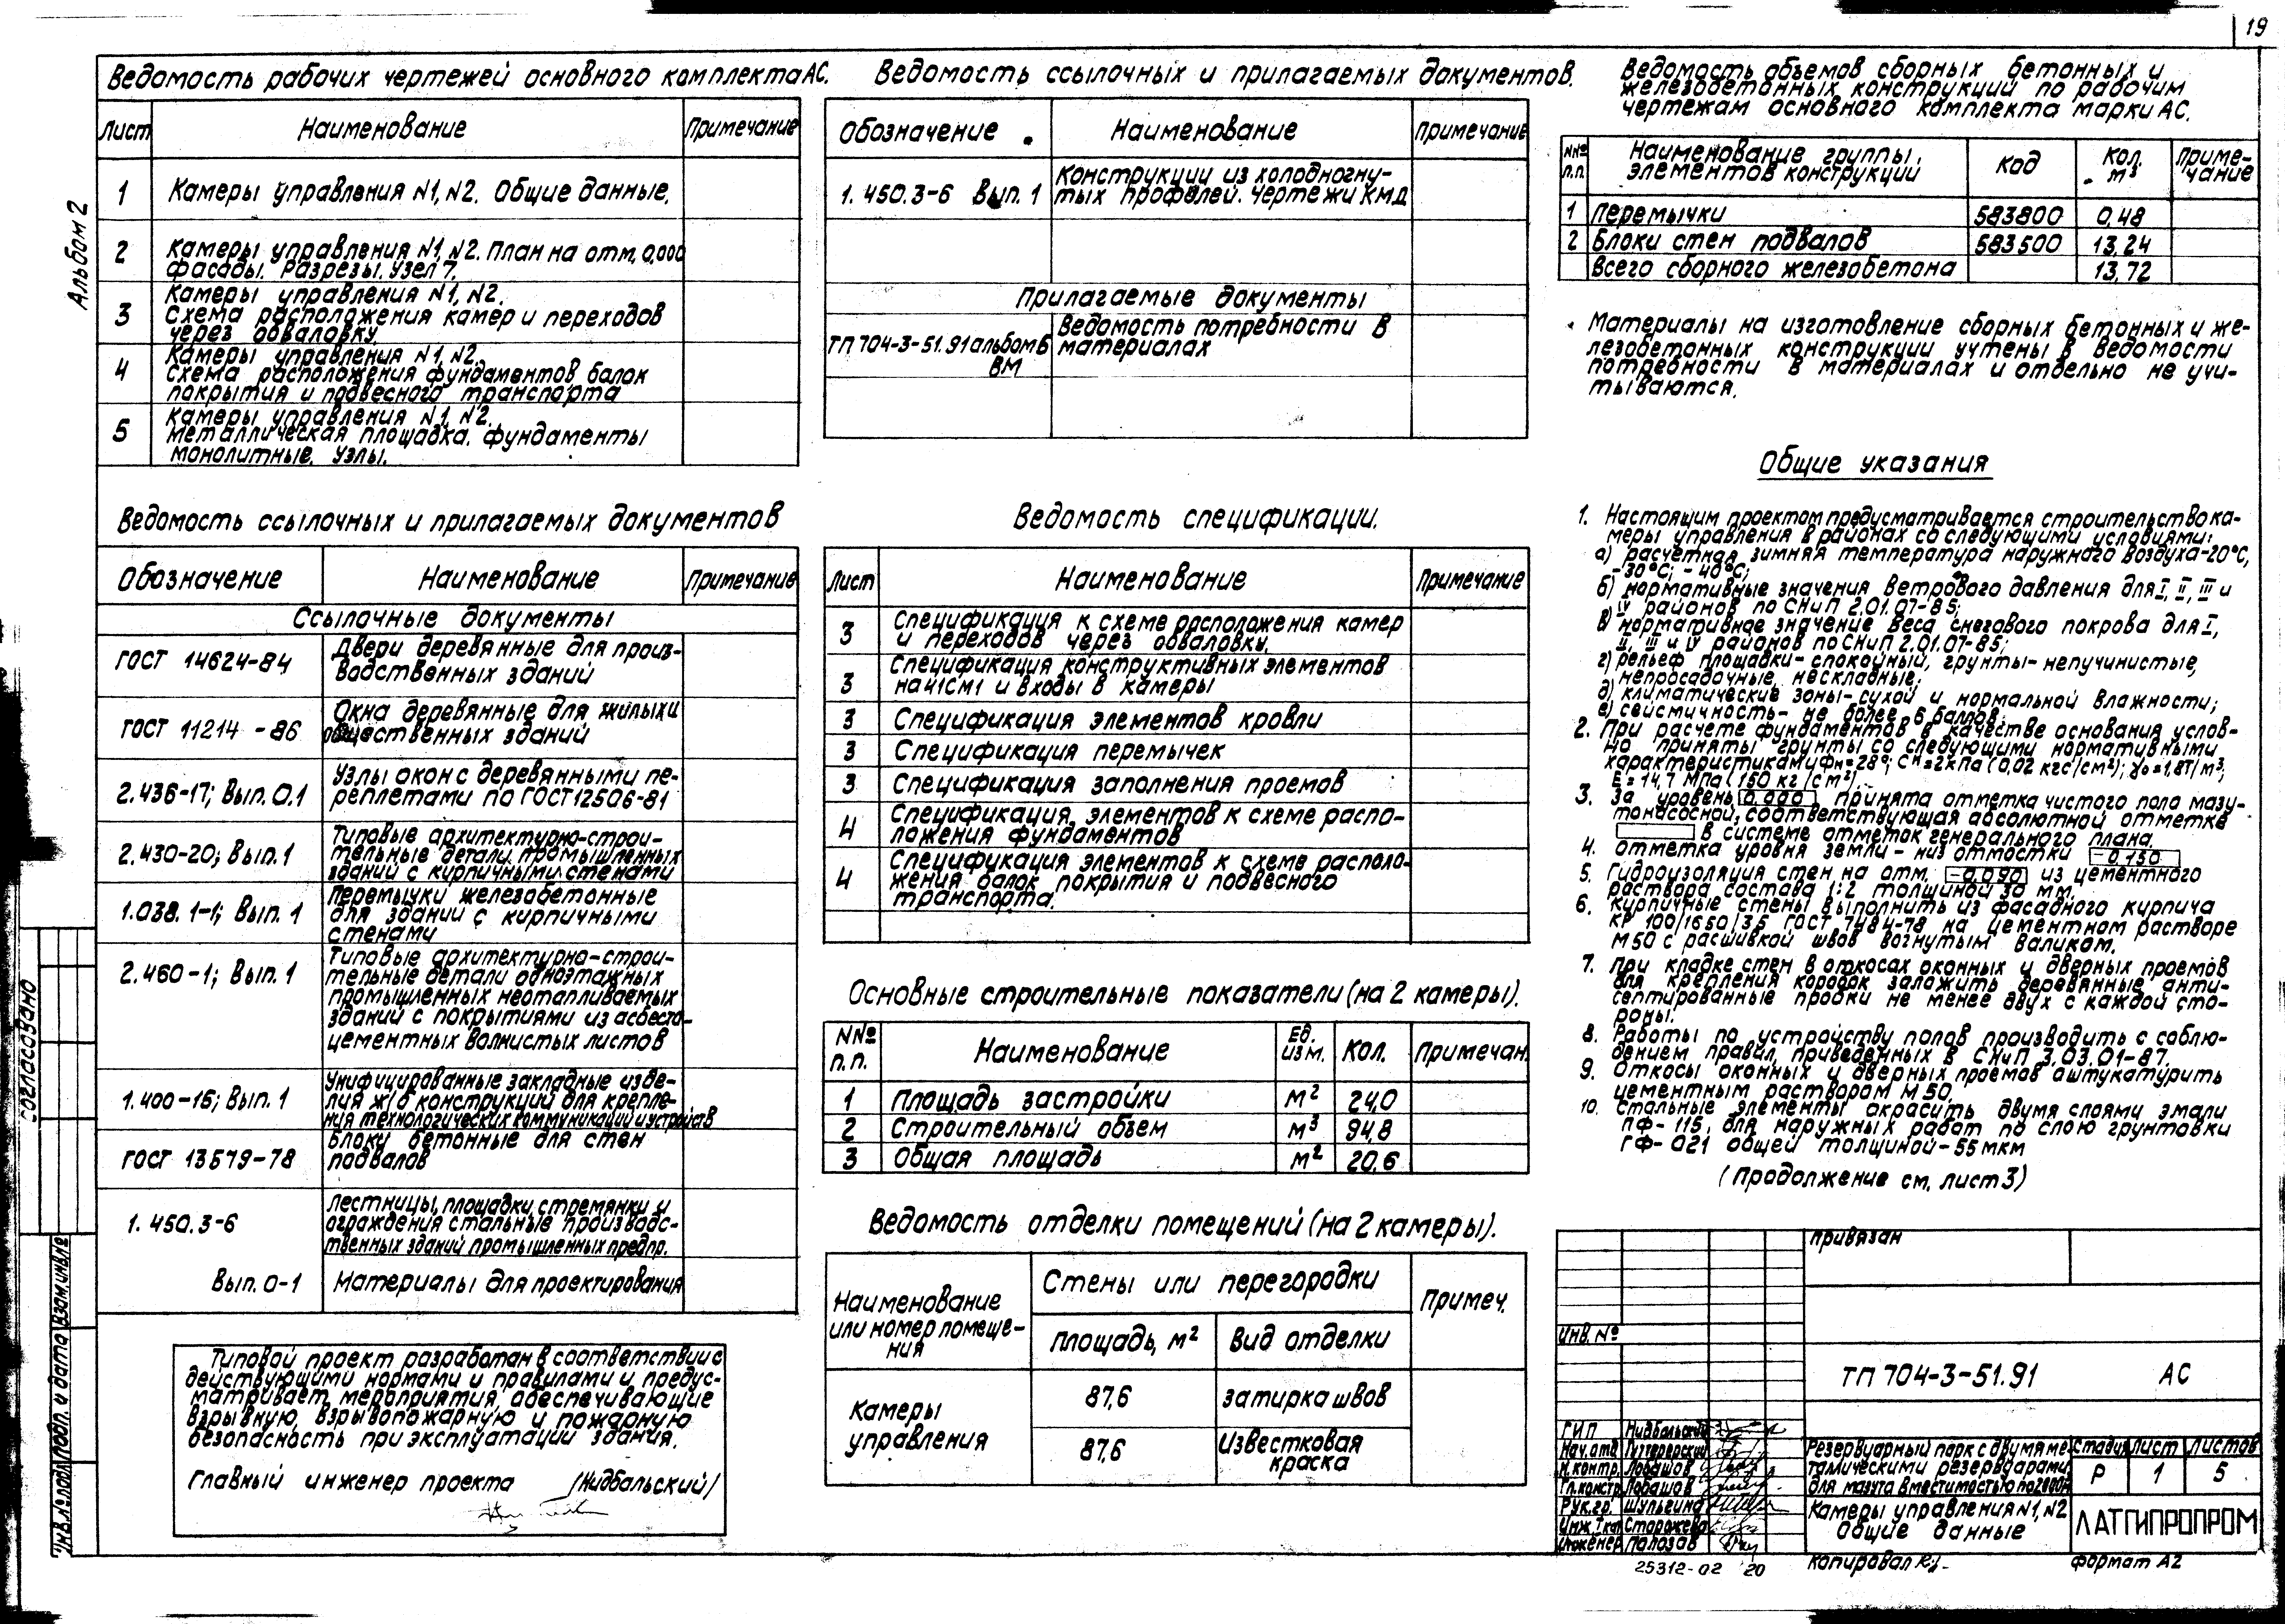 19
Альбом 2
Ведомость рабочих чертежей основного комплекта АС.
Лист Наименование Примечание
1 Камеры управления N1, N2. Общие данные.
2 Камеры управления N1, N2. План на отм. 0,000
фасады. Разрезы. Узел 7.
3 Камеры управления N1, N2.
Схема расположения камер и переходов
через обваловку
4 Камеры управления N1, N2.
Схема расположения фундаментов балок
покрытия и подвесного транспорта
5 Камеры управления N1, N2.
Металлическая площадка. Фундаменты
монолитные. Узлы.
Ведомость ссылочных и прилагаемых документов
Обозначение Наименование Примечание
Ссылочные документы
ГОСТ 14624-84 Двери деревянные для произ-
водственных зданий
ГОСТ 11214-86 Окна деревянные для жилых и
общественных зданий
2.436-17; Вып. 0.1 Узлы окон с деревянными пе-
реплетами по ГОСТ 12506-81
2.430-20; Вып. 1 Типовые архитектурно-строи-
тельные детали промышленных
зданий с кирпичными стенами
1.038.1-1; Вып. 1 Перемычки железобетонные
для зданий с кирпичными
стенами
2.460-1; Вып. 1 Типовые архитектурно-строи-
тельные детали одноэтажных
промышленных неотапливаемых
зданий с покрытиями из асбесто-
цементных волнистых листов
1.400-15; Вып. 1 Унифицированные закладные изде-
лия ж/б конструкций для крепле-
ния технологических коммуникаций и устройств
ГОСТ 13579-78 Блоки бетонные для стен
подвалов
1.450.3-6 Лестницы, площадки, стремянки и
ограждения стальные производс-
твенных зданий промышленных предпр.
Вып. 0-1 Материалы для проектирования
Типовой проект разработан в соответствии с
действующими нормами и правилами и предус-
матривает мероприятия, обеспечивающие
взрывную, взрывопожарную и пожарную
безопасность при эксплуатации здания.
Главный инженер проекта /Нидбальский/
Ведомость ссылочных и прилагаемых документов.
Обозначение Наименование Примечание
1.450.3-6 Вып. 1 Конструкции из холодногну-
тых профилей. Чертежи КМД
Прилагаемые документы
ТП 704-3-51.91 альбом 6 Ведомость потребности в
ВМ материалах
Ведомость спецификации.
Лист Наименование Примечание
3 Спецификация к схеме расположения камер
и переходов через обваловку.
3 Спецификация конструктивных элементов
на и1см1 и входы в камеры
3 Спецификация элементов кровли
3 Спецификация перемычек
3 Спецификация заполнения проемов
4 Спецификация элементов к схеме распо-
ложения фундаментов
4 Спецификация элементов к схеме располо-
жения балок покрытия и подвесного
транспорта.
Основные строительные показатели (на 2 камеры).
NNº п.п. Наименование Ед. изм. Кол. Примечан.
1 Площадь застройки м² 24,0
2 Строительный объем м³ 94,8
3 Общая площадь м² 20,6
Ведомость отделки помещений (на 2 камеры).
Наименование или номер помеще-ния Стены или перегородки Примеч.
Площадь, м² Вид отделки
Камеры управления 87,6 Затирка швов
87,6 Известковая краска
Ведомость объемов сборных бетонных и
железобетонных конструкций по рабочим
чертежам основного комплекта марки АС.
NNº п.п. Наименование группы, элементов конструкции Код Кол. м³ Приме-чание
1 Перемычки 583800 0,48
2 Блоки стен подвалов 583500 13,24
Всего сборного железобетона 13,72
Материалы на изготовление сборных бетонных и же-
лезобетонных конструкции учтены в ведомости
потребности в материалах и отдельно не учи-
тываются.
Общие указания
1. Настоящим проектом предусматривается строительство ка-
меры управления в районах со следующими условиями:
а) расчетная зимняя температура наружного воздуха -20°С,
-30°С; -40°С;
б) нормативные значения ветрового давления для I, II, III и
IV районов по СНиП 2.01.07-85;
в) нормативное значение веса снегового покрова для I,
II, III и IV районов по СНиП 2.01.07-85;
г) рельеф площадки - спокойный, грунты - непучинистые,
непросадочные, нескладные;
д) климатические зоны - сухой и нормальной влажности;
е) сейсмичность - не более 6 баллов.
2. При расчете фундаментов в качестве основания услов-
но приняты грунты со следующими нормативными
характеристиками: φн=28°; Сн=2кПа (0,02 кгс/см²); γо=1,8т/м³,
Е=14,7 МПа (150 кг/см²).
3. За уровень 0.000 принята отметка чистого пола мазу-
тонасосной, соответствующая абсолютной отметке
в системе отметок генерального плана.
4. Отметка уровня земли - низ отмостки -0.150
5. Гидроизоляция стен на отм. -0.090 из цементного
раствора состава 1:2 толщиной 30 мм.
6. Кирпичные стены выполнить из фасадного кирпича
КР 100/1650/35 ГОСТ 7484-78 на цементном растворе
М50 с расшивкой швов вогнутым валиком.
7. При кладке стен в откосах оконных и дверных проемов
для крепления коробок заложить деревянные анти-
септированные пробки не менее двух с каждой сто-
роны.
8. Работы по устройству полов производить с соблю-
дением правил, приведенных в СНиП 3.03.01-87.
9. Откосы оконных и дверных проемов оштукатурить
цементным раствором М50.
10. Стальные элементы окрасить двумя слоями эмали
ПФ-115, для наружных работ по слою грунтовки
ГФ-021 общей толщиной - 55 мкм
(Продолжение см. лист 3)
Привязан
Инв. №
ТП 704-3-51.91 АС
ГИП Нидбальский
Нач. отд.
Н. контр. Лобашов
Гл. констр. Лобашов
Рук. гр. Шульгина
Инж. I кат. Сторожева
Инженер Палозав
Резервуарный парк с двумя ме-
таллическими резервуарами
для мазута вместимостью по
Стадия Лист Листов
Р 1 5
Камеры управления N1, N2
Общие данные
ЛАТГИПРОПРОМ
25312-02 20
Копировал
Формат А2
Согласовано
Инв. № подл. Подп. и дата Взам. инв. №